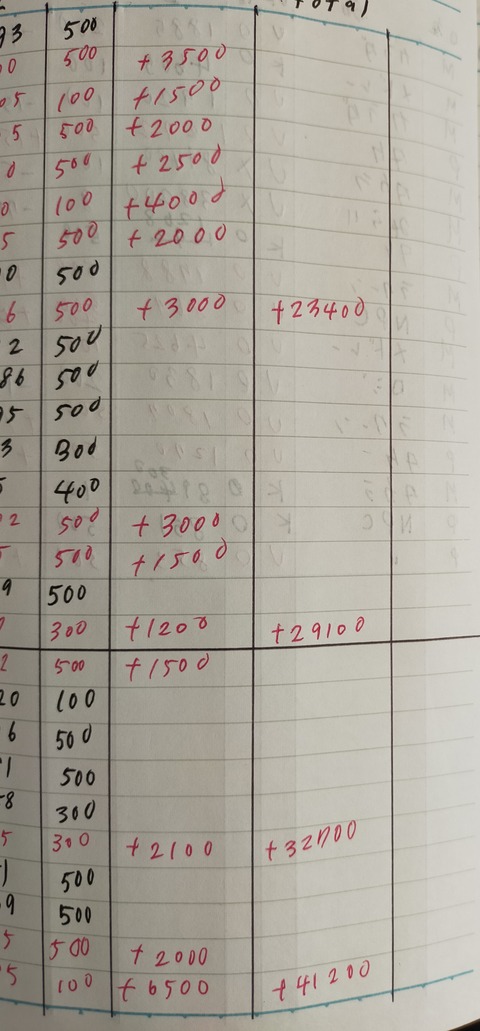 total
93 500
0 500 +3500
05 100 +1500
5 500 +2000
0 500 +2500
0 100 +4000
5 500 +2000
0 500
6 500 +3000 +23400
2 500
86 500
95 500
3 300
400
2 500 +3000
500 +1500
9 500
300 +1200 +29100
2 500 +1500
20 100
6 500
1 500
8 300
5 300 +2100 +32700
1 500
9 500
5 500 +2000
5 100 +6500 +41200